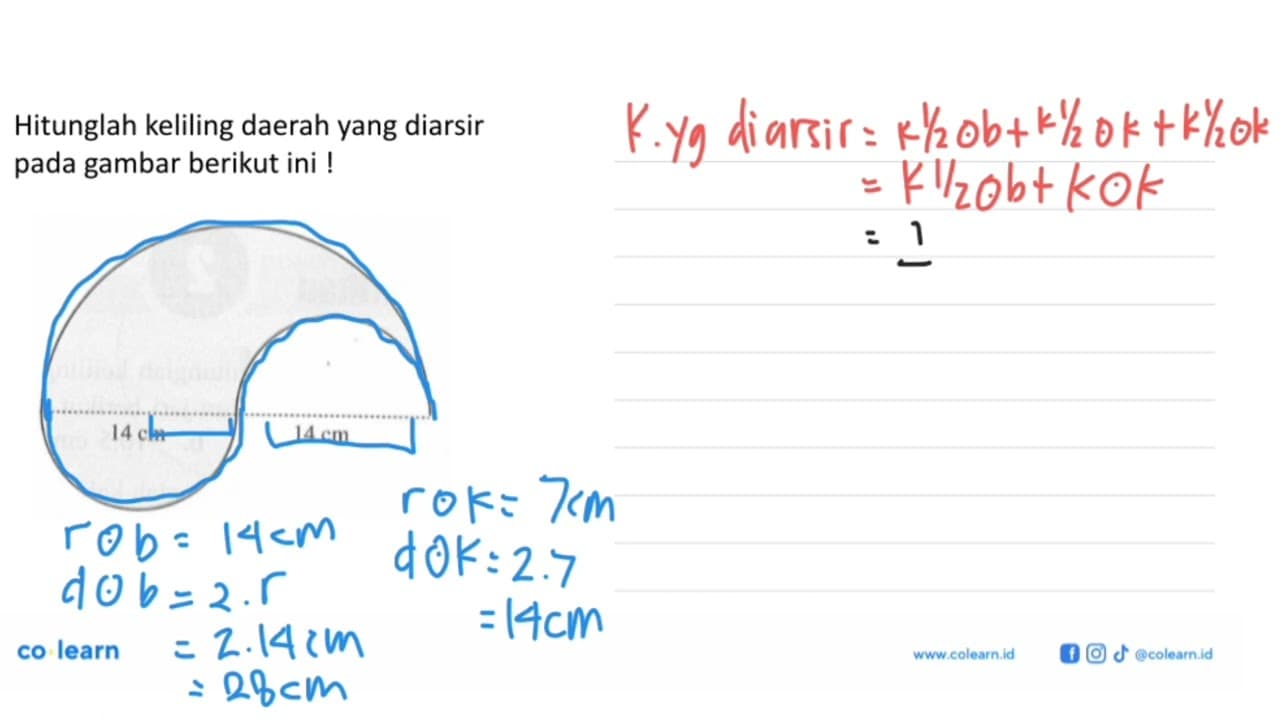 Hitunglah keliling daerah yang diarsir
pada gambar berikut ini !
14 cm
14 cm
r⊙b = 14cm
d⊙b = 2.r
= 2.14cm
= 28cm
r⊙k = 7cm
d⊙k = 2.7
= 14cm
K.yg diarsir = k½⊙b + k½⊙k + k½⊙k
= K½⊙b + k⊙k
= 1
co learn
www.colearn.id
@colearn.id